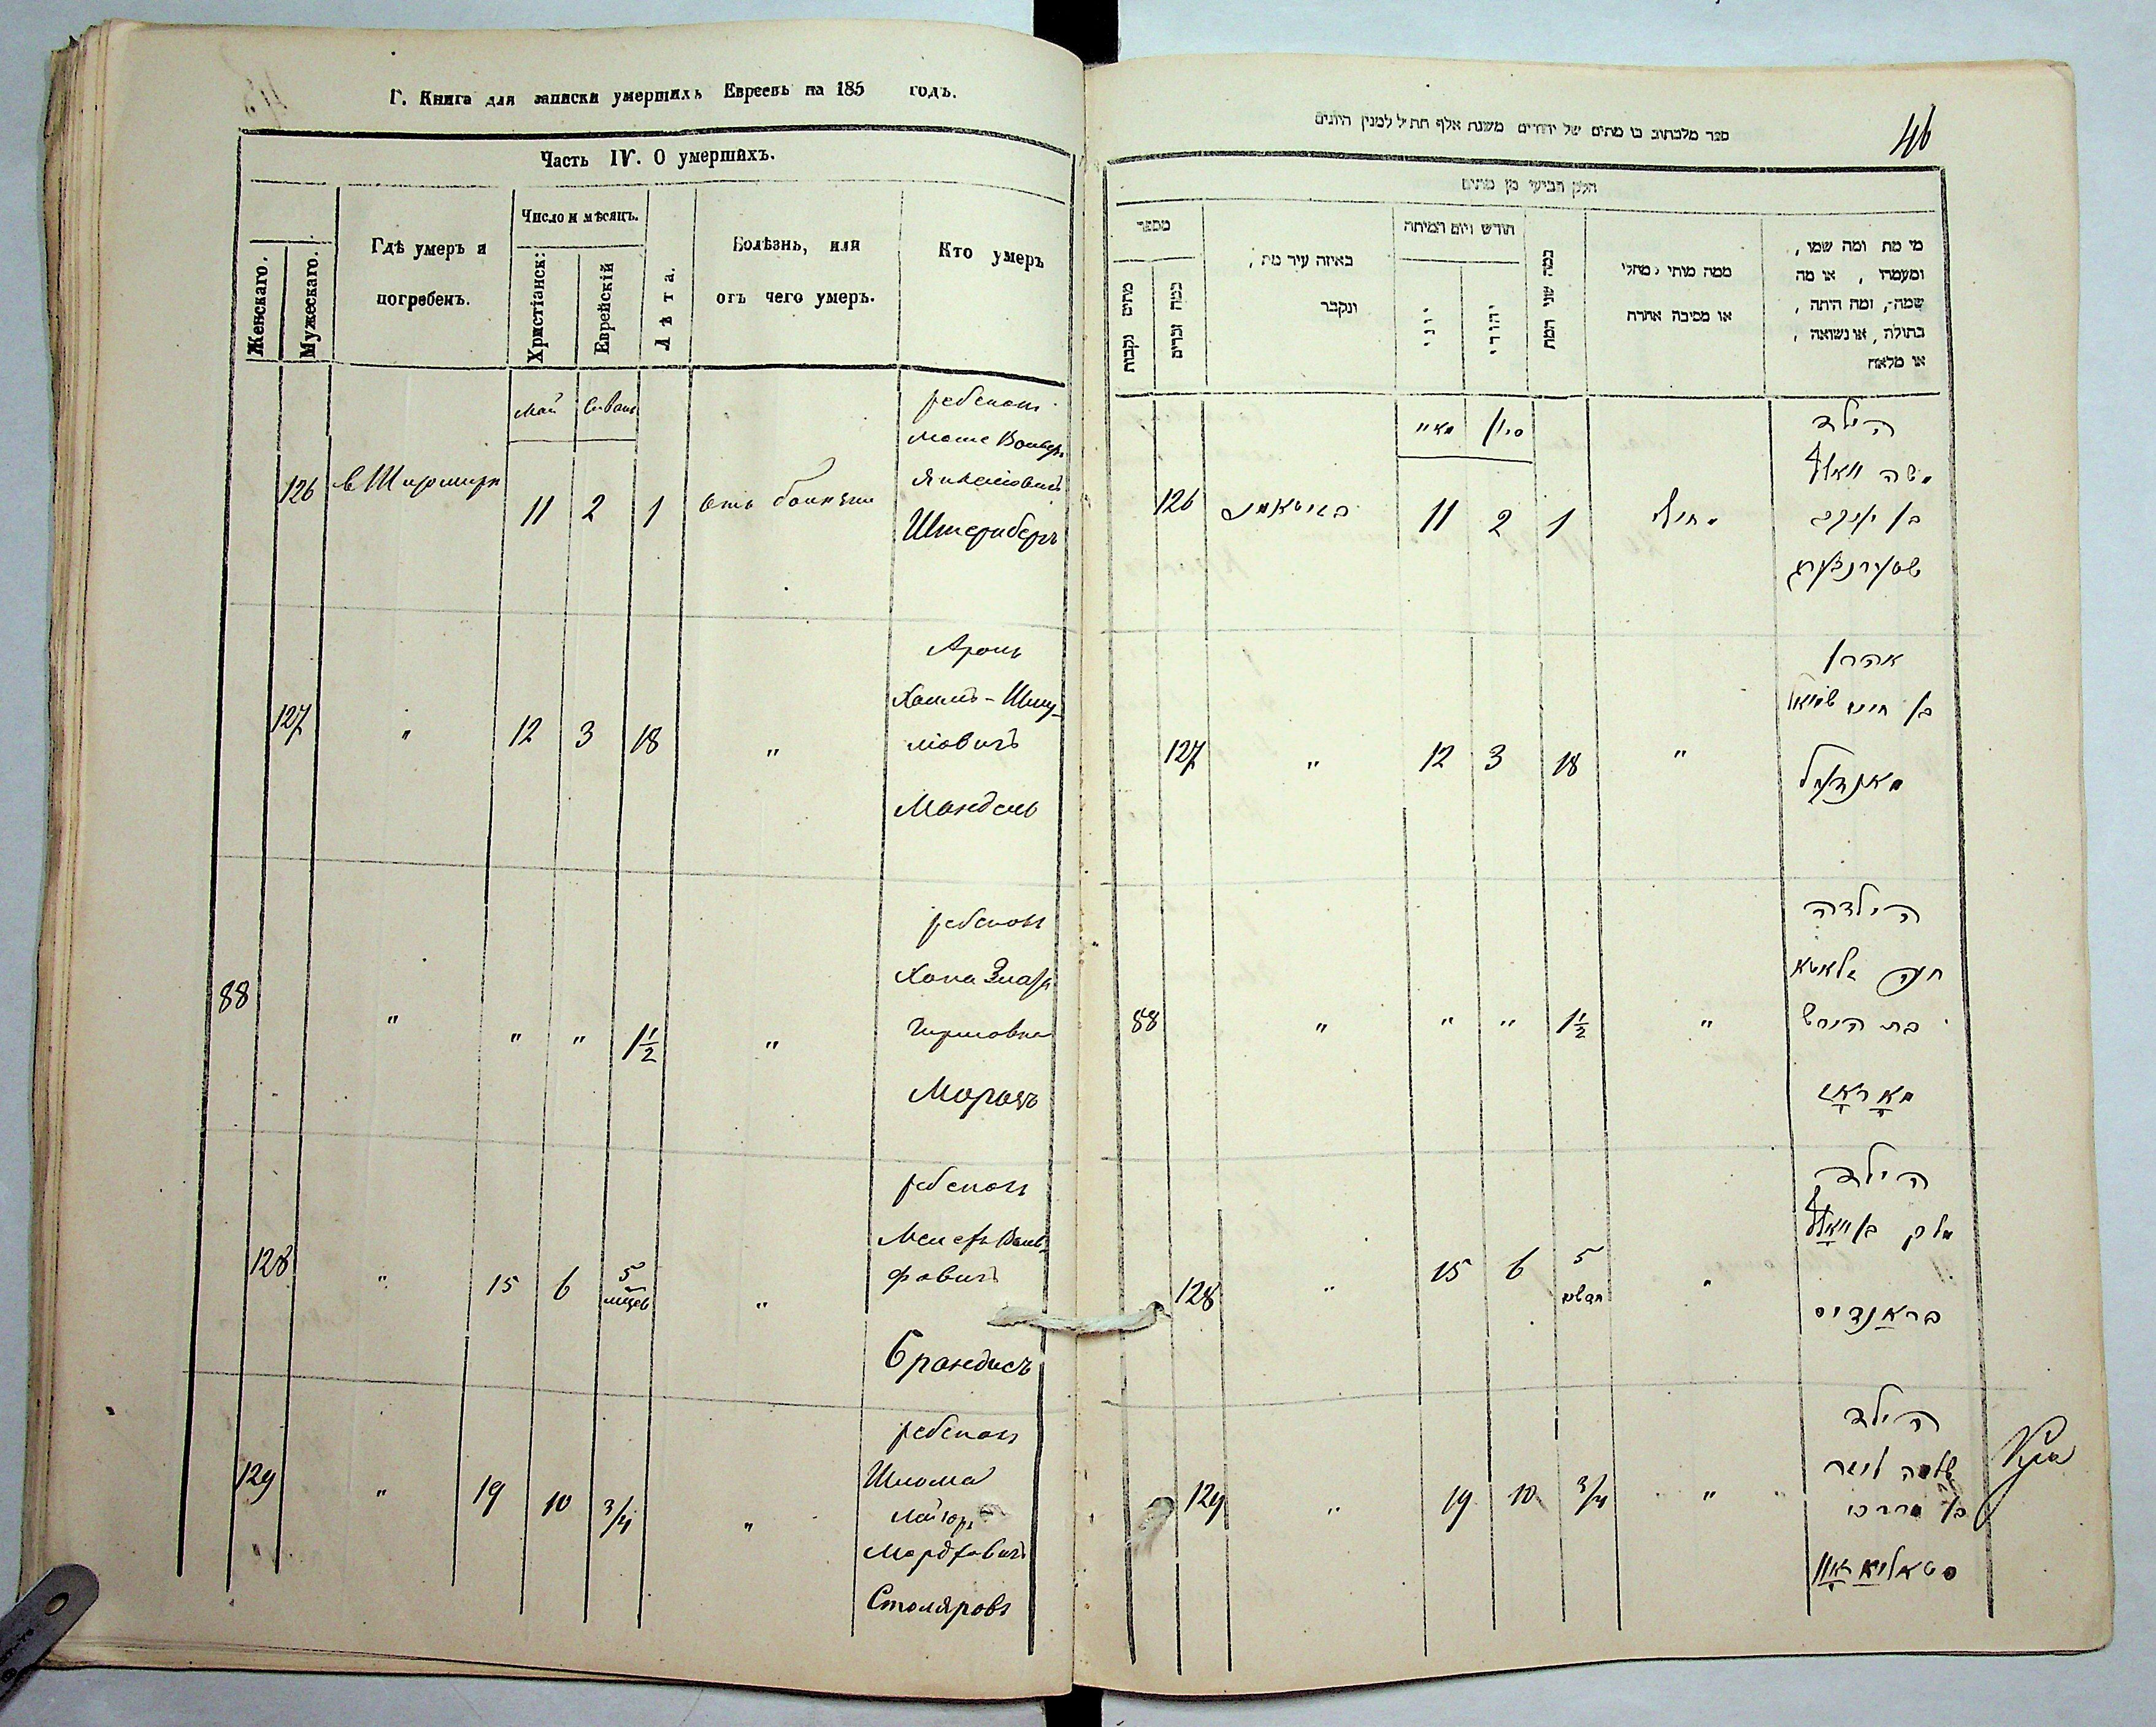 Г. Книга для записки умершихъ Евреевъ на 185 годъ.
Часть IV. О умершихъ.
Женскаго.
Мужескаго.
Гдѣ умеръ и
погребенъ.
Число и мѣсяцъ.
Христіанск:
Еврейскій
Лѣта.
Болѣзнь, или
отъ чего умеръ.
Кто умеръ
Май
Сиванъ
126
в Житомирѣ
11
2
1
отъ болѣзни
ребенокъ
Моше Вольфъ
Янкелiовичъ
Штернбергъ
127
"
12
3
18
"
Аронъ
Хаимъ-Шму-
лiовичъ
Мандель
88
"
"
"
1 1/2
"
ребенокъ
Хана Злата
Гершовна
Морозъ
128
"
15
6
5
мѣсяц
"
ребенокъ
Мелехъ Воль-
фовичъ
Брандисъ
129
"
19
10
3/4
"
ребенокъ
Шлома
Лейзоръ
Мордковичъ
Столяровъ
46
ספר מלכתוב בו מתים של יהודים משנת אלף תת״ל למנין היונים
חלק רביעי מן מתים
מספר
מתים נקבות
כמה זכרים
באיזה עיר מת,
ונקבר
חודש ויום המיתה
יוני
יהודי
כמה שני המת
ממה מותי, מחלי
או מסיבה אחרת
מי מת ומה שמו,
ומעמדו, או מה
שמה, ומה היתה,
בתולה, או נשואה,
או מלאה
מאיי
סיון
126
11
2
1
הילד
משה וואלף
בן יענקב
שטערנבערג
127
"
12
3
18
"
אהרן
בן חיים שמואל
מאנדעל
88
"
"
"
1 1/2
"
הילדה
חנה זלאטא
בת הירש
מאראז
128
"
15
6
5
חדשים
"
הילד
מלך בן וואלף
בראנדיס
129
"
19
10
3/4
"
הילד
שלמה לייזר
בן מרדכי
סטאליאראוו